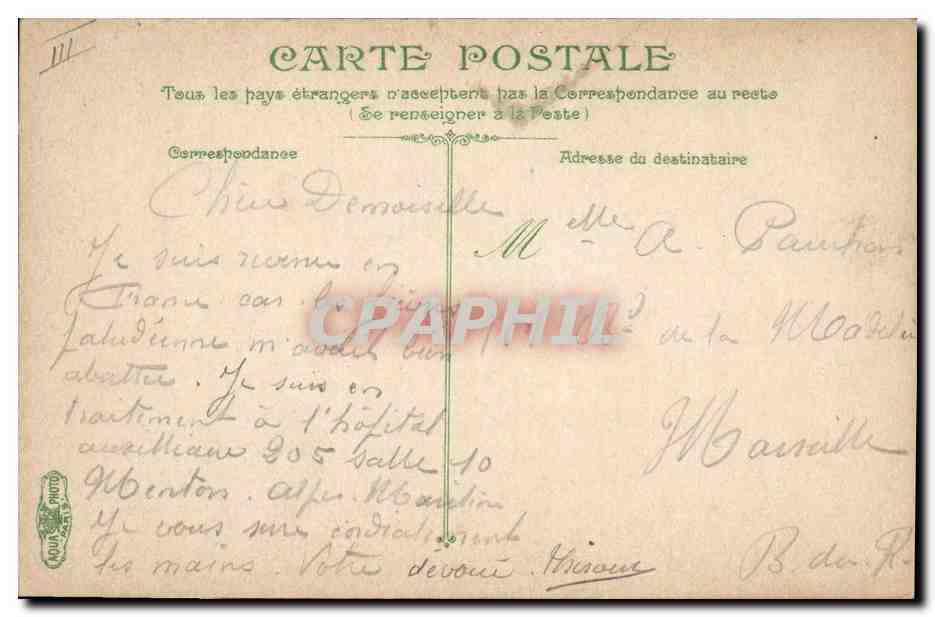 III
CARTE POSTALE
Tous les pays étrangers n'acceptent pas la Correspondance au recto
(Se renseigner à la Poste)
Correspondance
Chère Demoiselle
Je suis revenu en
France car les fièvres
paludéenne m'avait bien
abattu. Je suis en
traitement à l'hôpital
auxilliaire 205 salle 10
Menton. Alpes. Maritim
Je vous serre cordialement
les mains. Votre dévoué.
AQUA PHOTO
PARIS
Adresse du destinataire
Melle A.
de la Madelei
Marseille
B. du R.
CPAPHIL